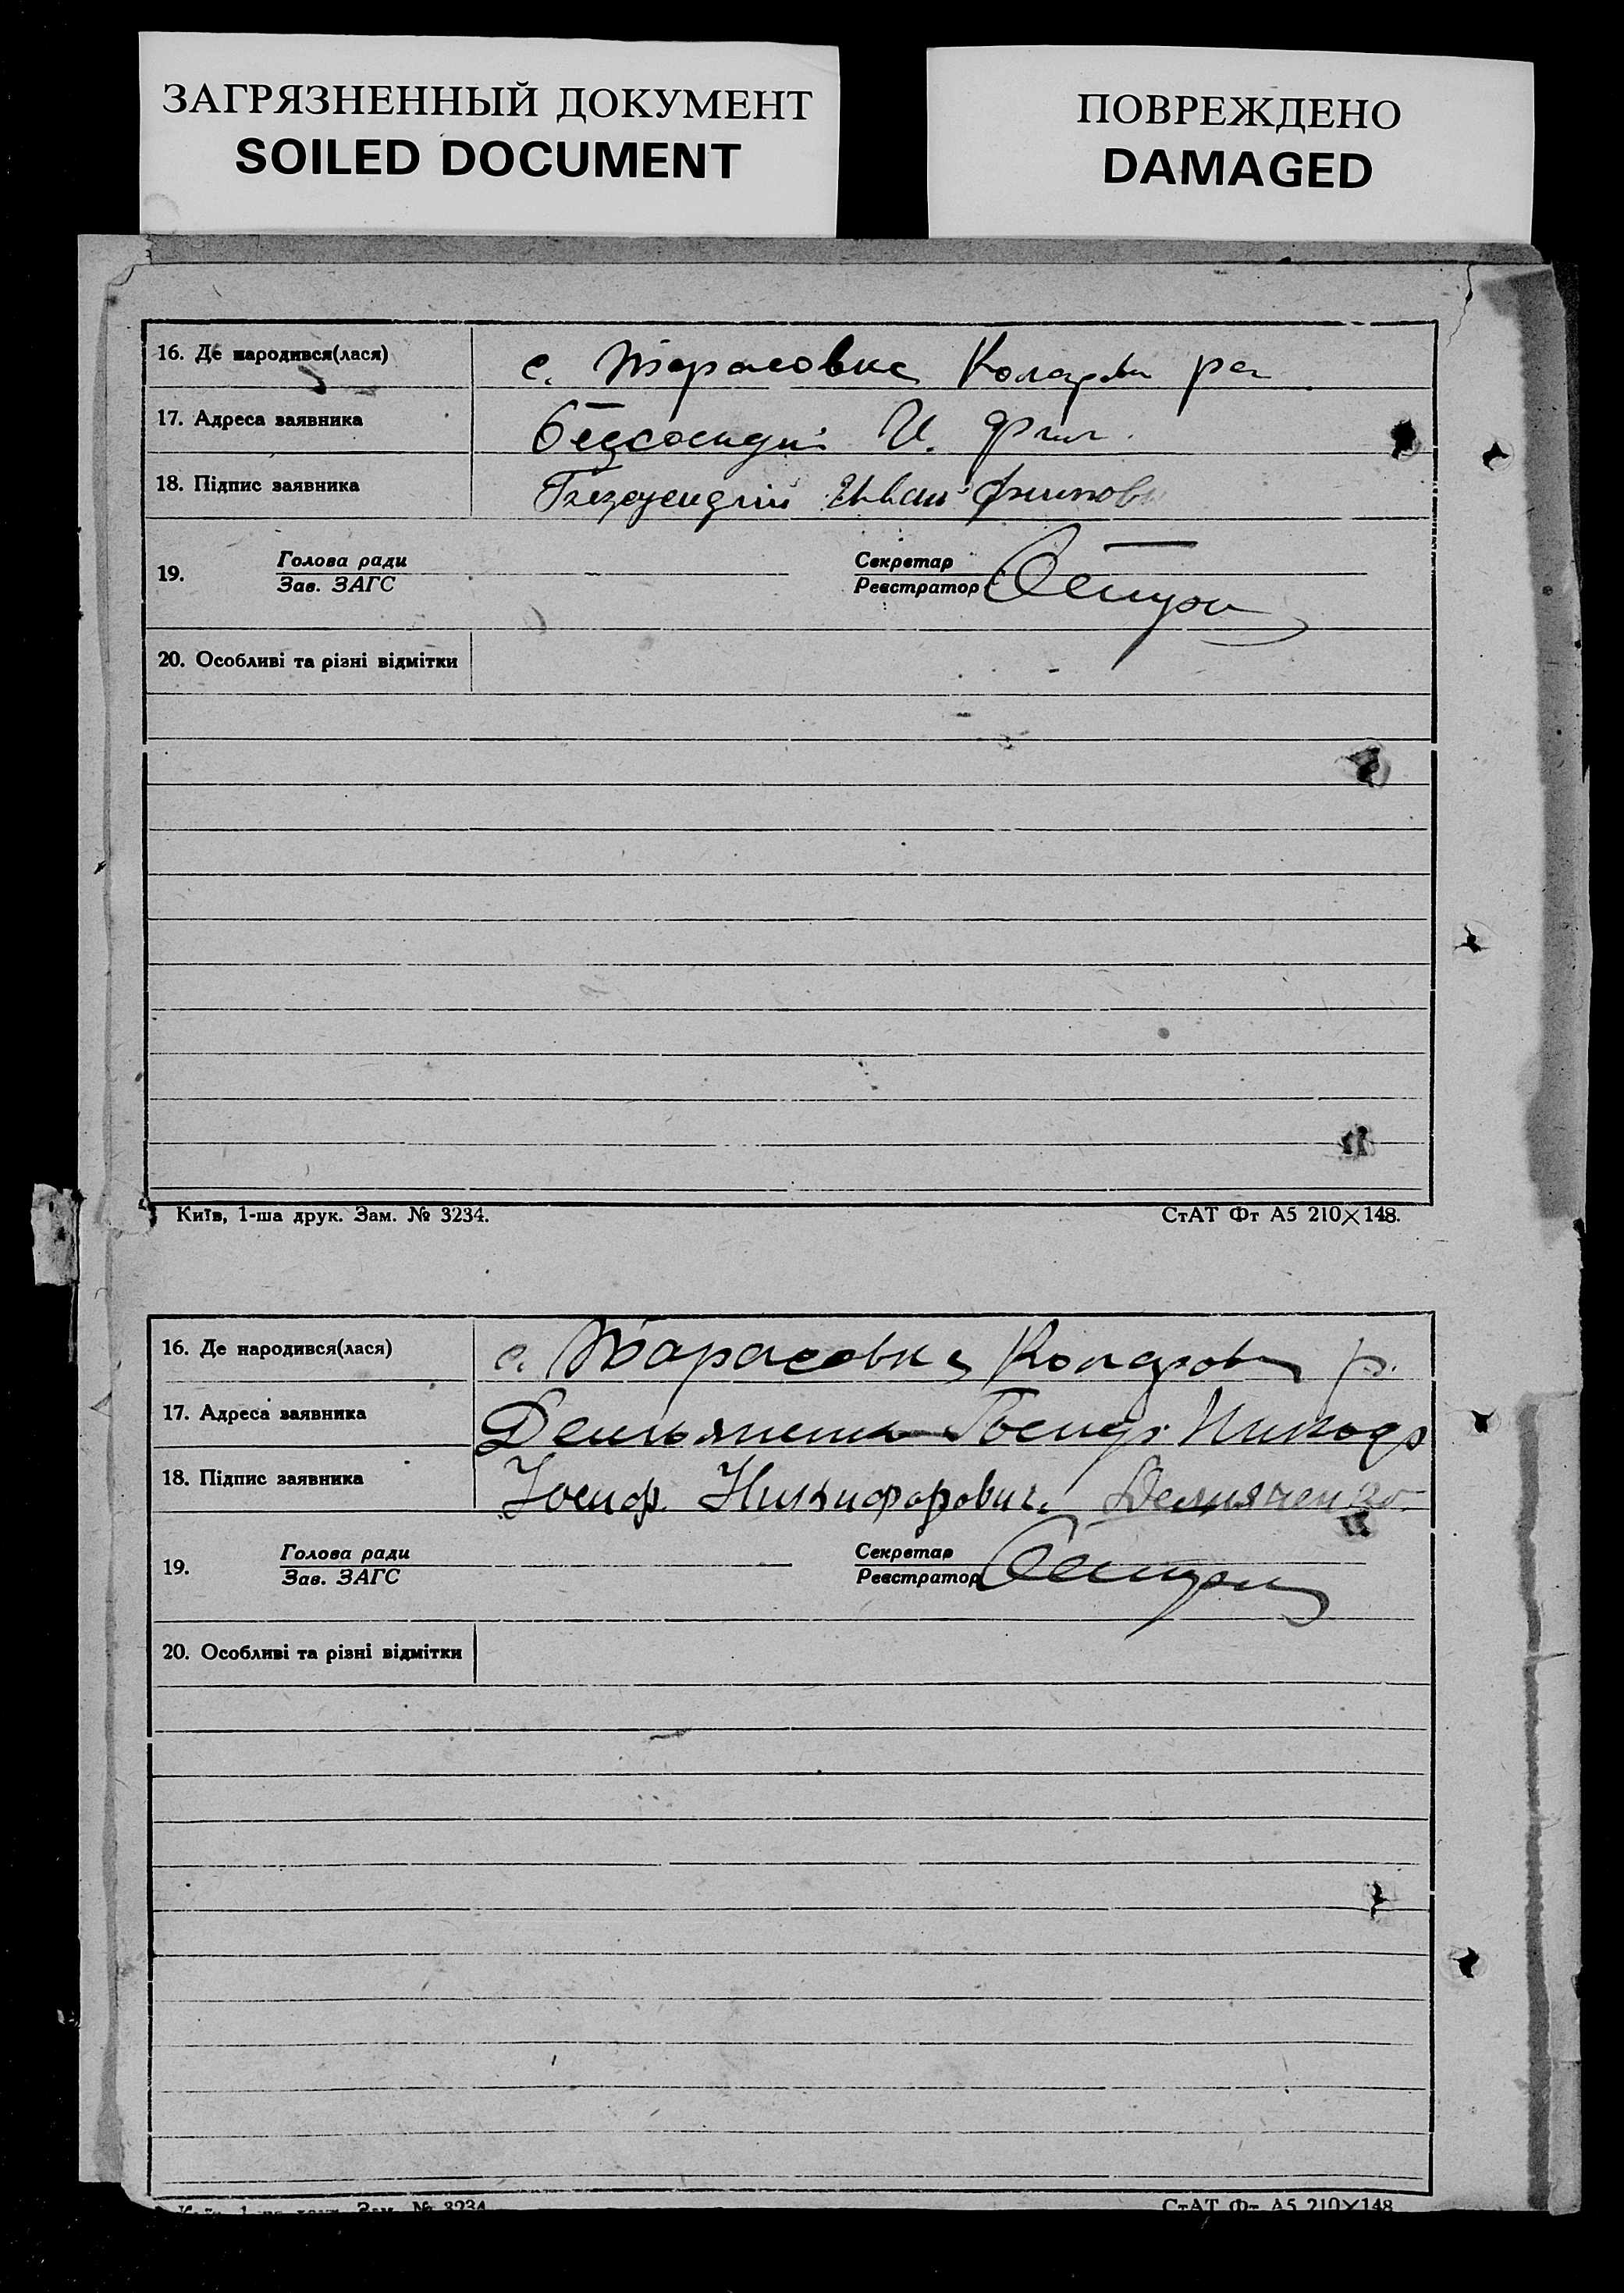 ЗАГРЯЗНЕННЫЙ ДОКУМЕНТ
SOILED DOCUMENT
ПОВРЕЖДЕНО
DAMAGED
16. Де народився(лася) с. Тарасовка
17. Адреса заявника И. Фил.
18. Підпис заявника Иван
19. Голова ради Секретар
Зав. ЗАГС Реєстратор
20. Особливі та різні відмітки
Київ, 1-ша друк. Зам. № 3234. СтАТ Фт А5 210×148.
16. Де народився(лася) с. Тарасовка р.
17. Адреса заявника
18. Підпис заявника Иосиф Никифорович Демяненко
19. Голова ради Секретар
Зав. ЗАГС Реєстратор
20. Особливі та різні відмітки
Зам. № 3234 СтАТ Фт А5 210×148